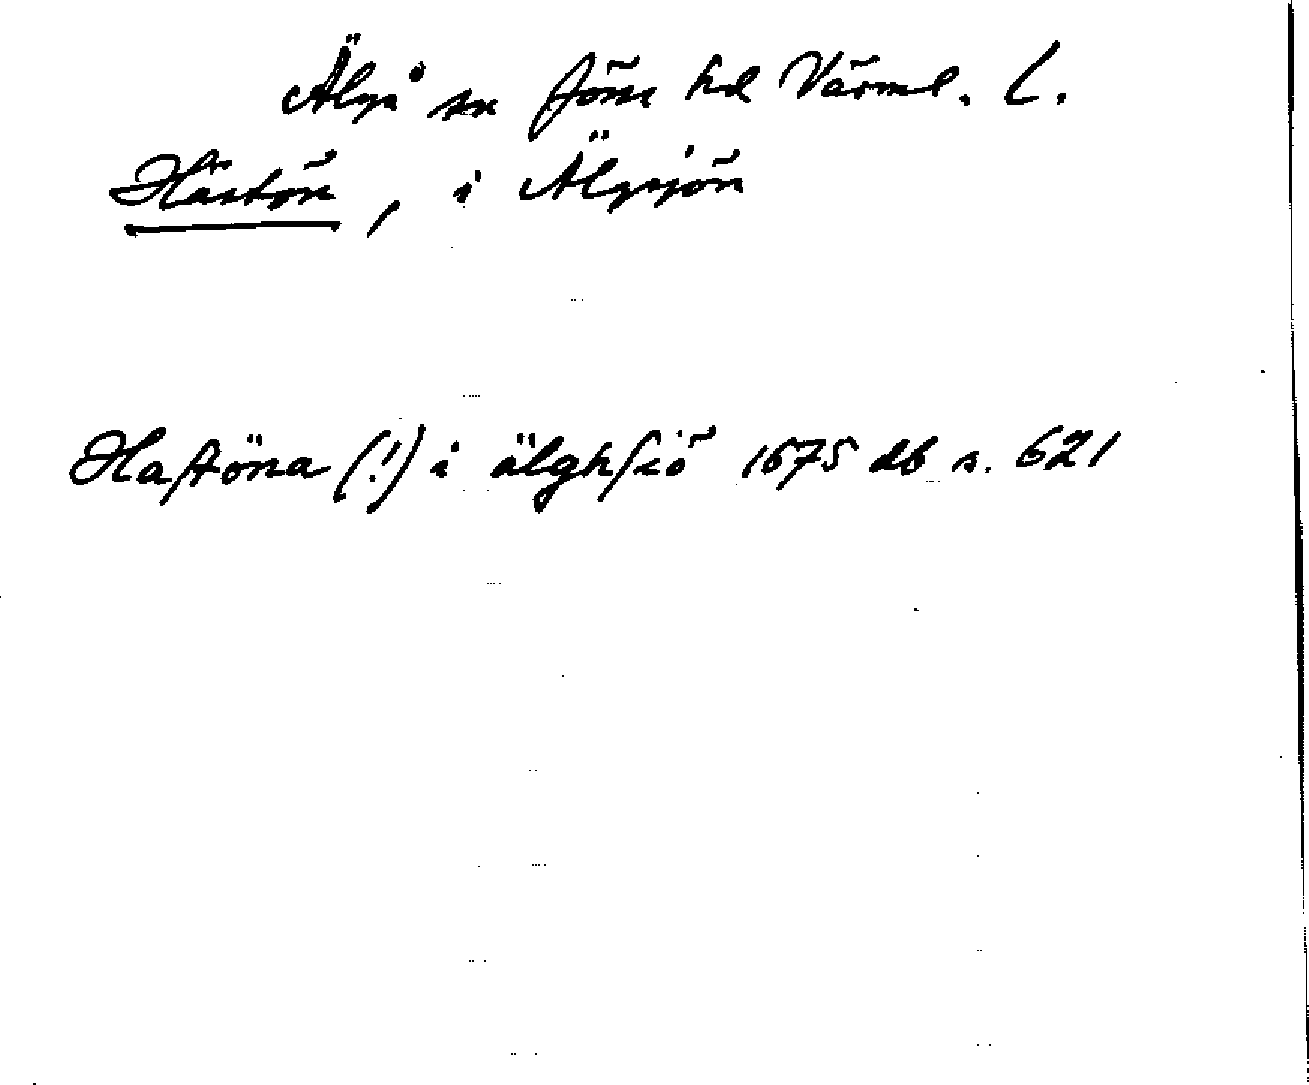 Älgå sn Jösse hd Värml. L.
Hästön, i Älgsjön
Haſtöna (!) i älghſiö 1675 db s. 621